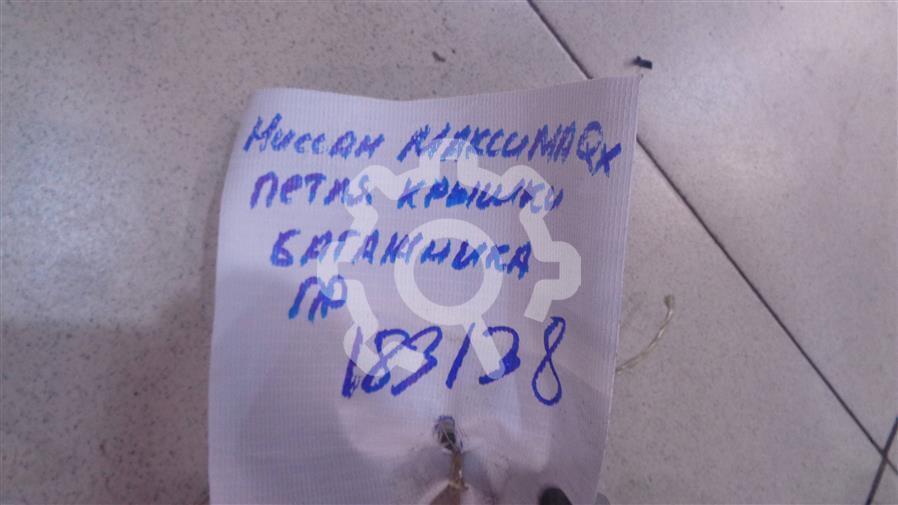 Ниссан МАКСИМА QX
ПЕТЛЯ КРЫШКИ
БАГАЖНИКА
ПР
183138